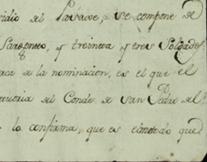 sidio del Pasage, se compone de
Sargentos, y treinta y tres Soldados
de la nominacion, es el que el
del Conde de San Pedro del
lo confirma, que es cometido que